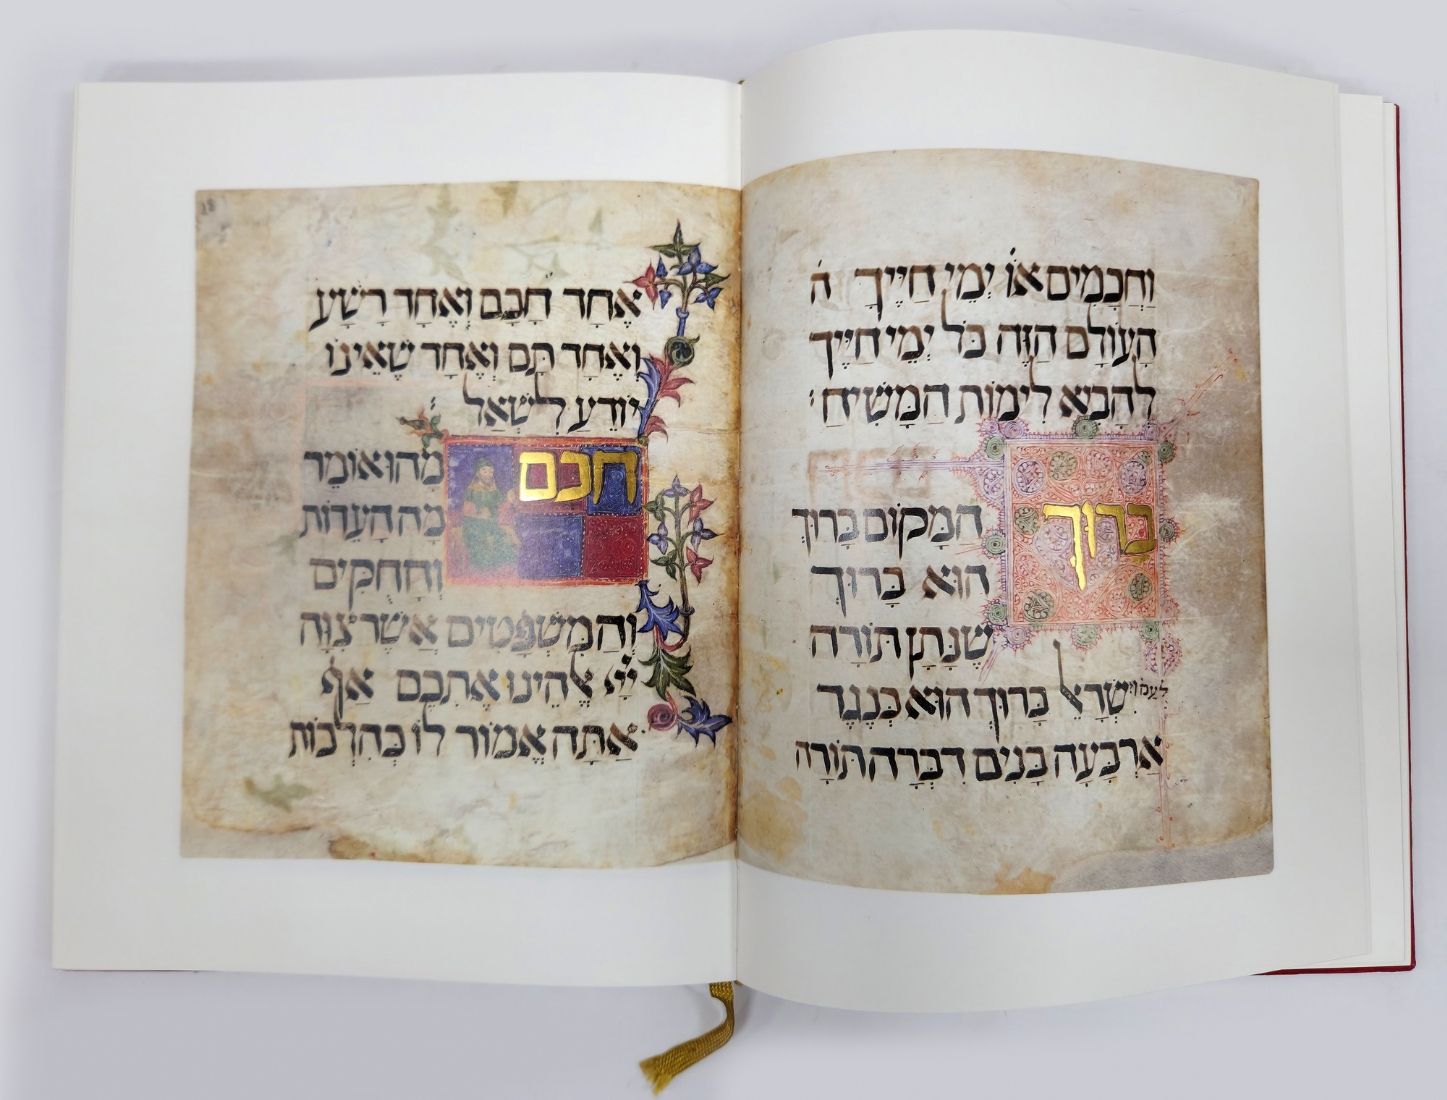 וַחֲכָמִים אוֹ׳ יְמֵי חַיֶּיךָ הָ
הָעוֹלָם הַזֶּה כֹּל יְמֵי חַיֶּיךָ
לְהָבִא לִימוֹת הַמָּשִׁיחַ:
בָּרוּךְ
הַמָּקוֹם בָּרוּךְ
הוּא בָּרוּךְ
שֶׁנָּתַן תּוֹרָה
לעמו ישְׂרָאֵל בָּרוּךְ הוּא כְּנֶגֶד
אַרְבָּעָה בָנִים דִּבְּרָה תּוֹרָה
אֶחָד חָכָם וְאֶחָד רָשָׁע
וְאֶחָד תָּם וְאֶחָד שֶׁאֵינוֹ
יוֹדֵעַ לִשְׁאַל:
חכם
מָה וּאוֹמֵר
מָה הָעֵדוֹת
וְהַחֻקִּים
וְהַמִּשְׁפָּטִים אֲשֶׁר צִוָּה
יְיָ אֱלֹהֵינוּ אֶתְכֶם אַף
אַתָּה אֱמוֹר לוֹ כְּהִלְכוֹת